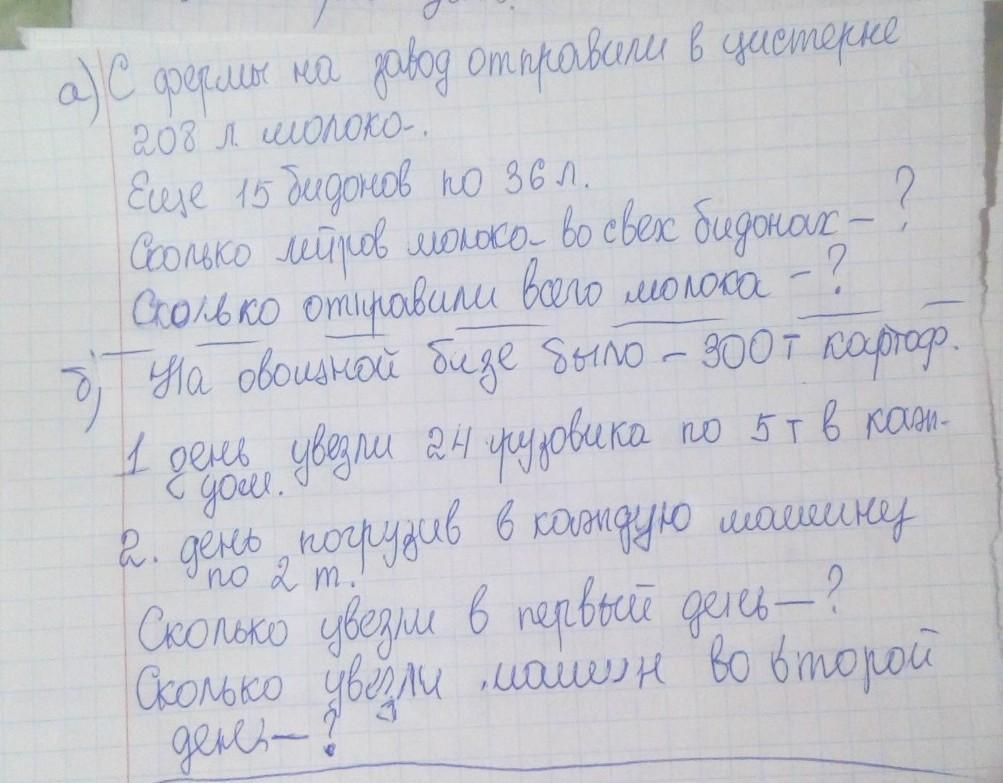 а) С фермы на завод отправили в цистерне
208 л молоко.
Еще 15 бидонов по 36 л.
Сколько литров молоко во свех бидонах - ?
Сколько отправили всего молока - ?
б) На овощной базе было - 300 т картоф.
1 день увезли 24 грузовика по 5 т в каж-
дом.
2. день погрузив в каждую машину
по 2 т.
Сколько увезли в первый день - ?
Сколько увезли машин во второй
день - ?